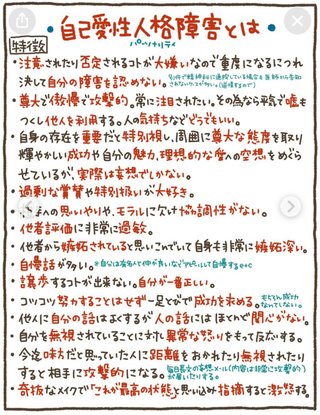 ・自己愛性人格障害とは・
パーソナリティ
特徴
・注意されたり否定されるコトが大嫌いなので重度になるにつれ
決して自分の障害を認めない。
・尊大で傲慢で攻撃的。常に注目されたい。その為なら平気で嘘も
つくし他人を利用する。人の気持ちなどどうでもいい。
・自身の存在を重要だと特別視し、周囲に尊大な態度を取り
輝やかしい成功や自分の魅力、理想的な愛への空想をめぐら
せているが、実際は妄想でしかない。
・過剰な賞賛や特別扱いが大好き。
人の思いやりや、モラルに欠け協調性がない。
・他者評価に非常に過敏。
・他者から嫉妬されていると思いこんでいて自身も非常に嫉妬深い。
・自慢話が多い。※自分は有名人と仲が良いなどアピールして自慢するetc
・譲歩するコトが出来ない。自分が一番正しい。
・コツコツ努力することはせず一足とびで成功を求める。
・他人に自分の話はよくするが人の話にはほとんど関心がない。
・自分を無視されていることに対し異常な怒りをもって反応する。
・今迄味方だと思っていた人に距離をおかれたり無視されたり
すると相手に攻撃的になる。
・奇抜なメイクで「これが最高の状態」と思い込み指摘すると激怒する。